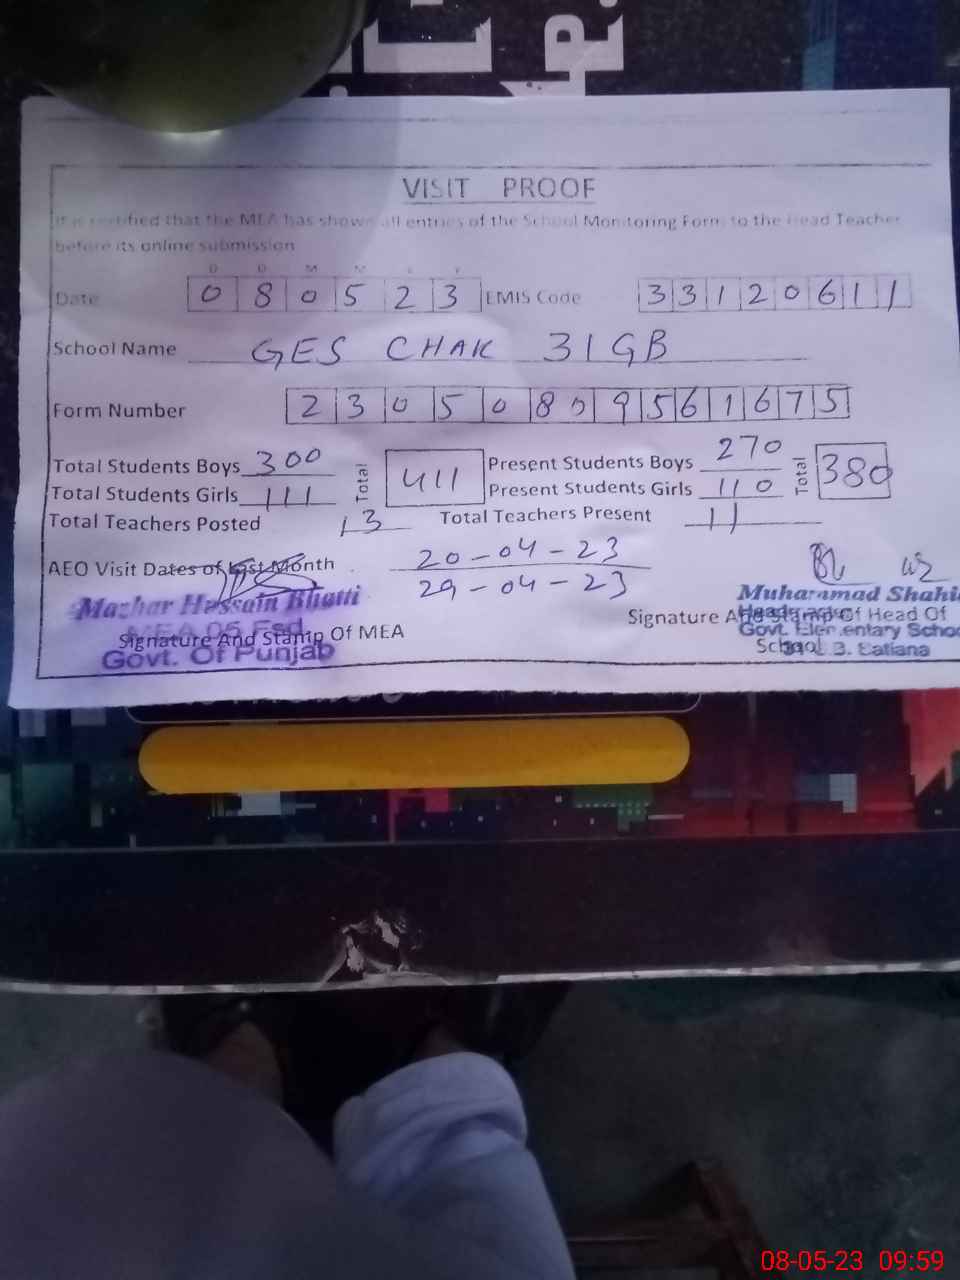 VISIT PROOF
It is certified that the MEA has shown all entries of the School Monitoring Form to the Head Teacher
before its online submission
D D M M Y Y
Date 080523 EMIS Code 33120611
School Name GES CHAK 31GB
Form Number 23050809561675
Total Students Boys 300 Total 411 Present Students Boys 270 Total 380
Total Students Girls 111 Present Students Girls 110
Total Teachers Posted 13 Total Teachers Present 11
AEO Visit Dates of Last Month 20-04-23
29-04-23
Mazhar Hussain Bhatti
MEA 05 Fsd
Govt. Of Punjab
Signature And Stamp Of MEA
Muhammad Shahi
Govt. Elementary Schoo
Satiana
Signature And Stamp Of Head Of
School
08-05-23 09:59